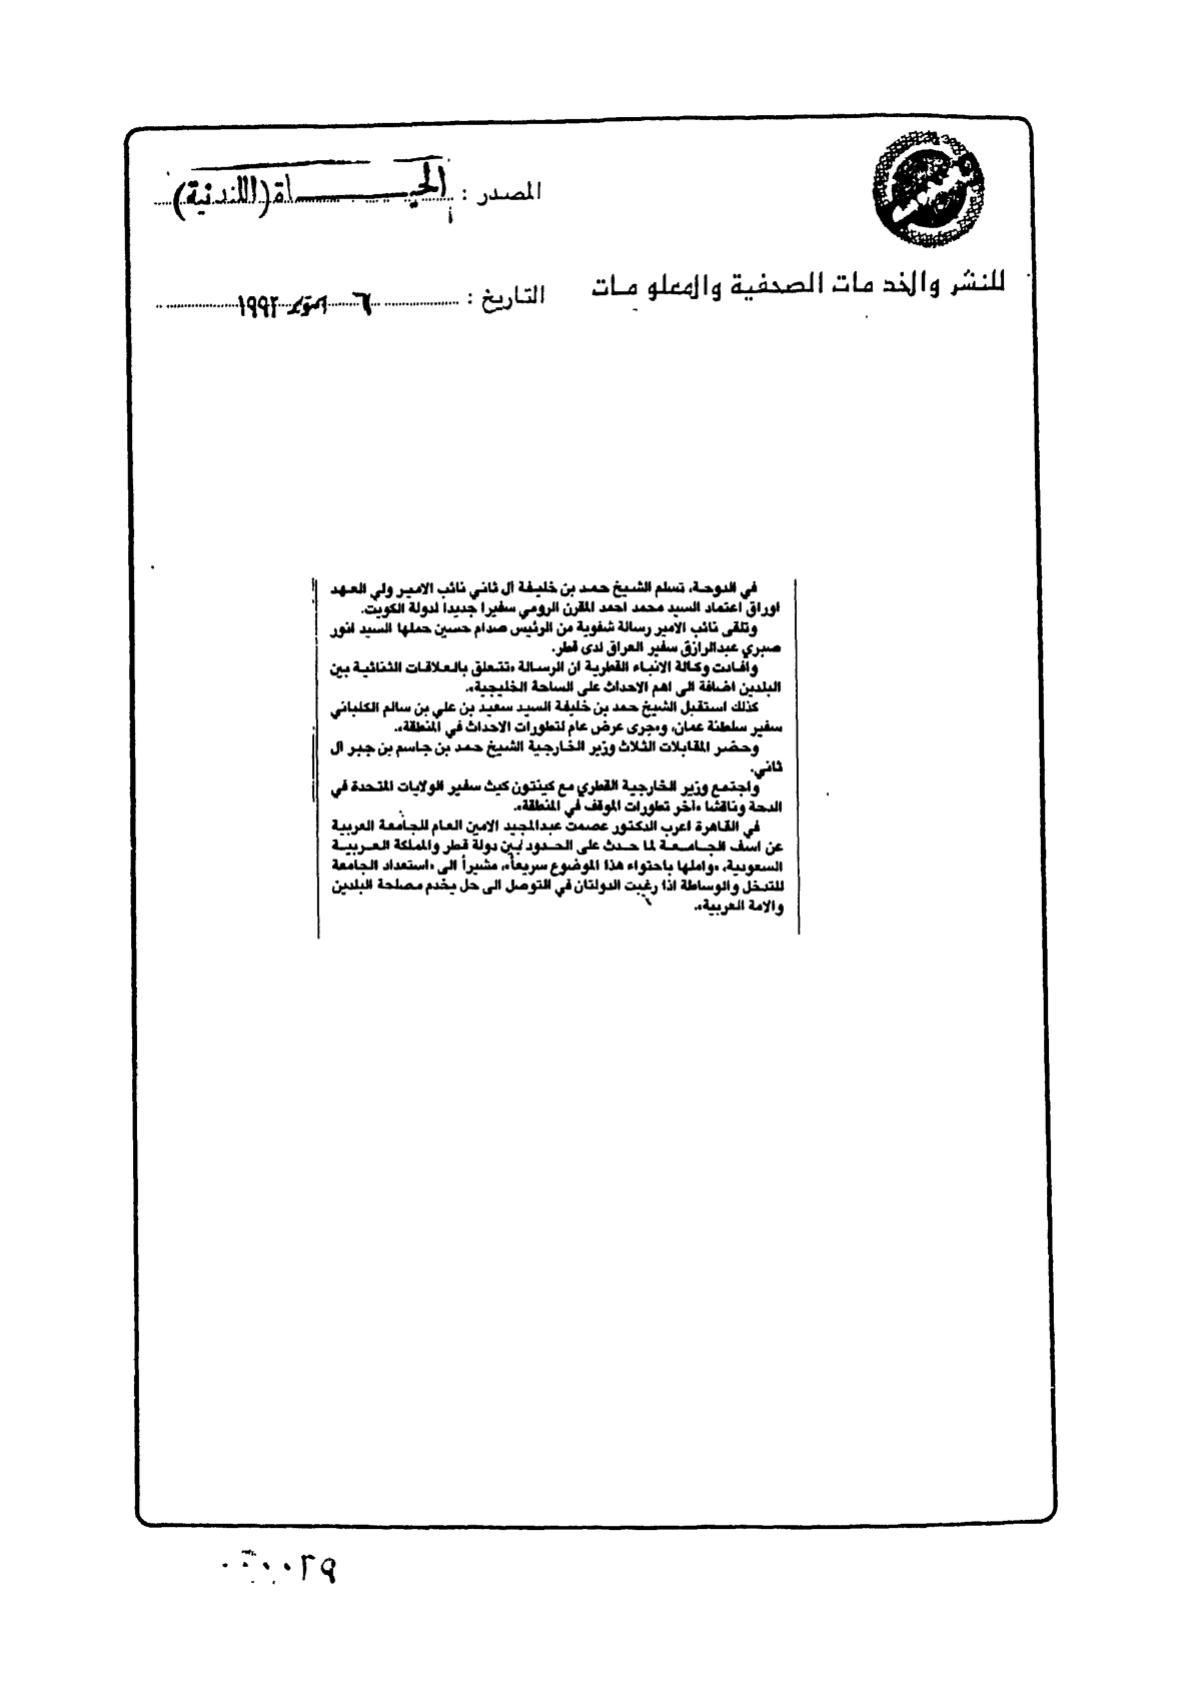 المصدر : الحيـــــاة (اللندنية)
للنشر والخدمات الصحفية والمعلومات
التاريخ : ٦ اكتوبر ١٩٩٢
في الدوحة، تسلم الشيخ حمد بن خليفة آل ثاني نائب الامير ولي العهد
اوراق اعتماد السيد محمد احمد المقرن الرومي سفيرا جديداً لدولة الكويت.
وتلقى نائب الامير رسالة شفوية من الرئيس صدام حسين حملها السيد انور
صبري عبدالرازق سفير العراق لدى قطر.
وافادت وكالة الانباء القطرية ان الرسالة «تتعلق بالعلاقات الثنائية بين
البلدين اضافة الى اهم الاحداث على الساحة الخليجية».
كذلك استقبل الشيخ حمد بن خليفة السيد سعيد بن علي بن سالم الكلباني
سفير سلطنة عمان، و«جرى عرض عام لتطورات الاحداث في المنطقة».
وحضر المقابلات الثلاث وزير الخارجية الشيخ حمد بن جاسم بن جبر آل
ثاني.
واجتمع وزير الخارجية القطري مع كينتون كيث سفير الولايات المتحدة في
الدحة وناقشا «آخر تطورات الموقف في المنطقة».
في القاهرة اعرب الدكتور عصمت عبدالمجيد الامين العام للجامعة العربية
عن اسف الجامعة لما حدث على الحدود بين دولة قطر والمملكة العربية
السعودية، «واملها باحتواء هذا الموضوع سريعاً»، مشيراً الى «استعداد الجامعة
للتدخل والوساطة اذا رغبت الدولتان في التوصل الى حل يخدم مصلحة البلدين
والامة العربية».